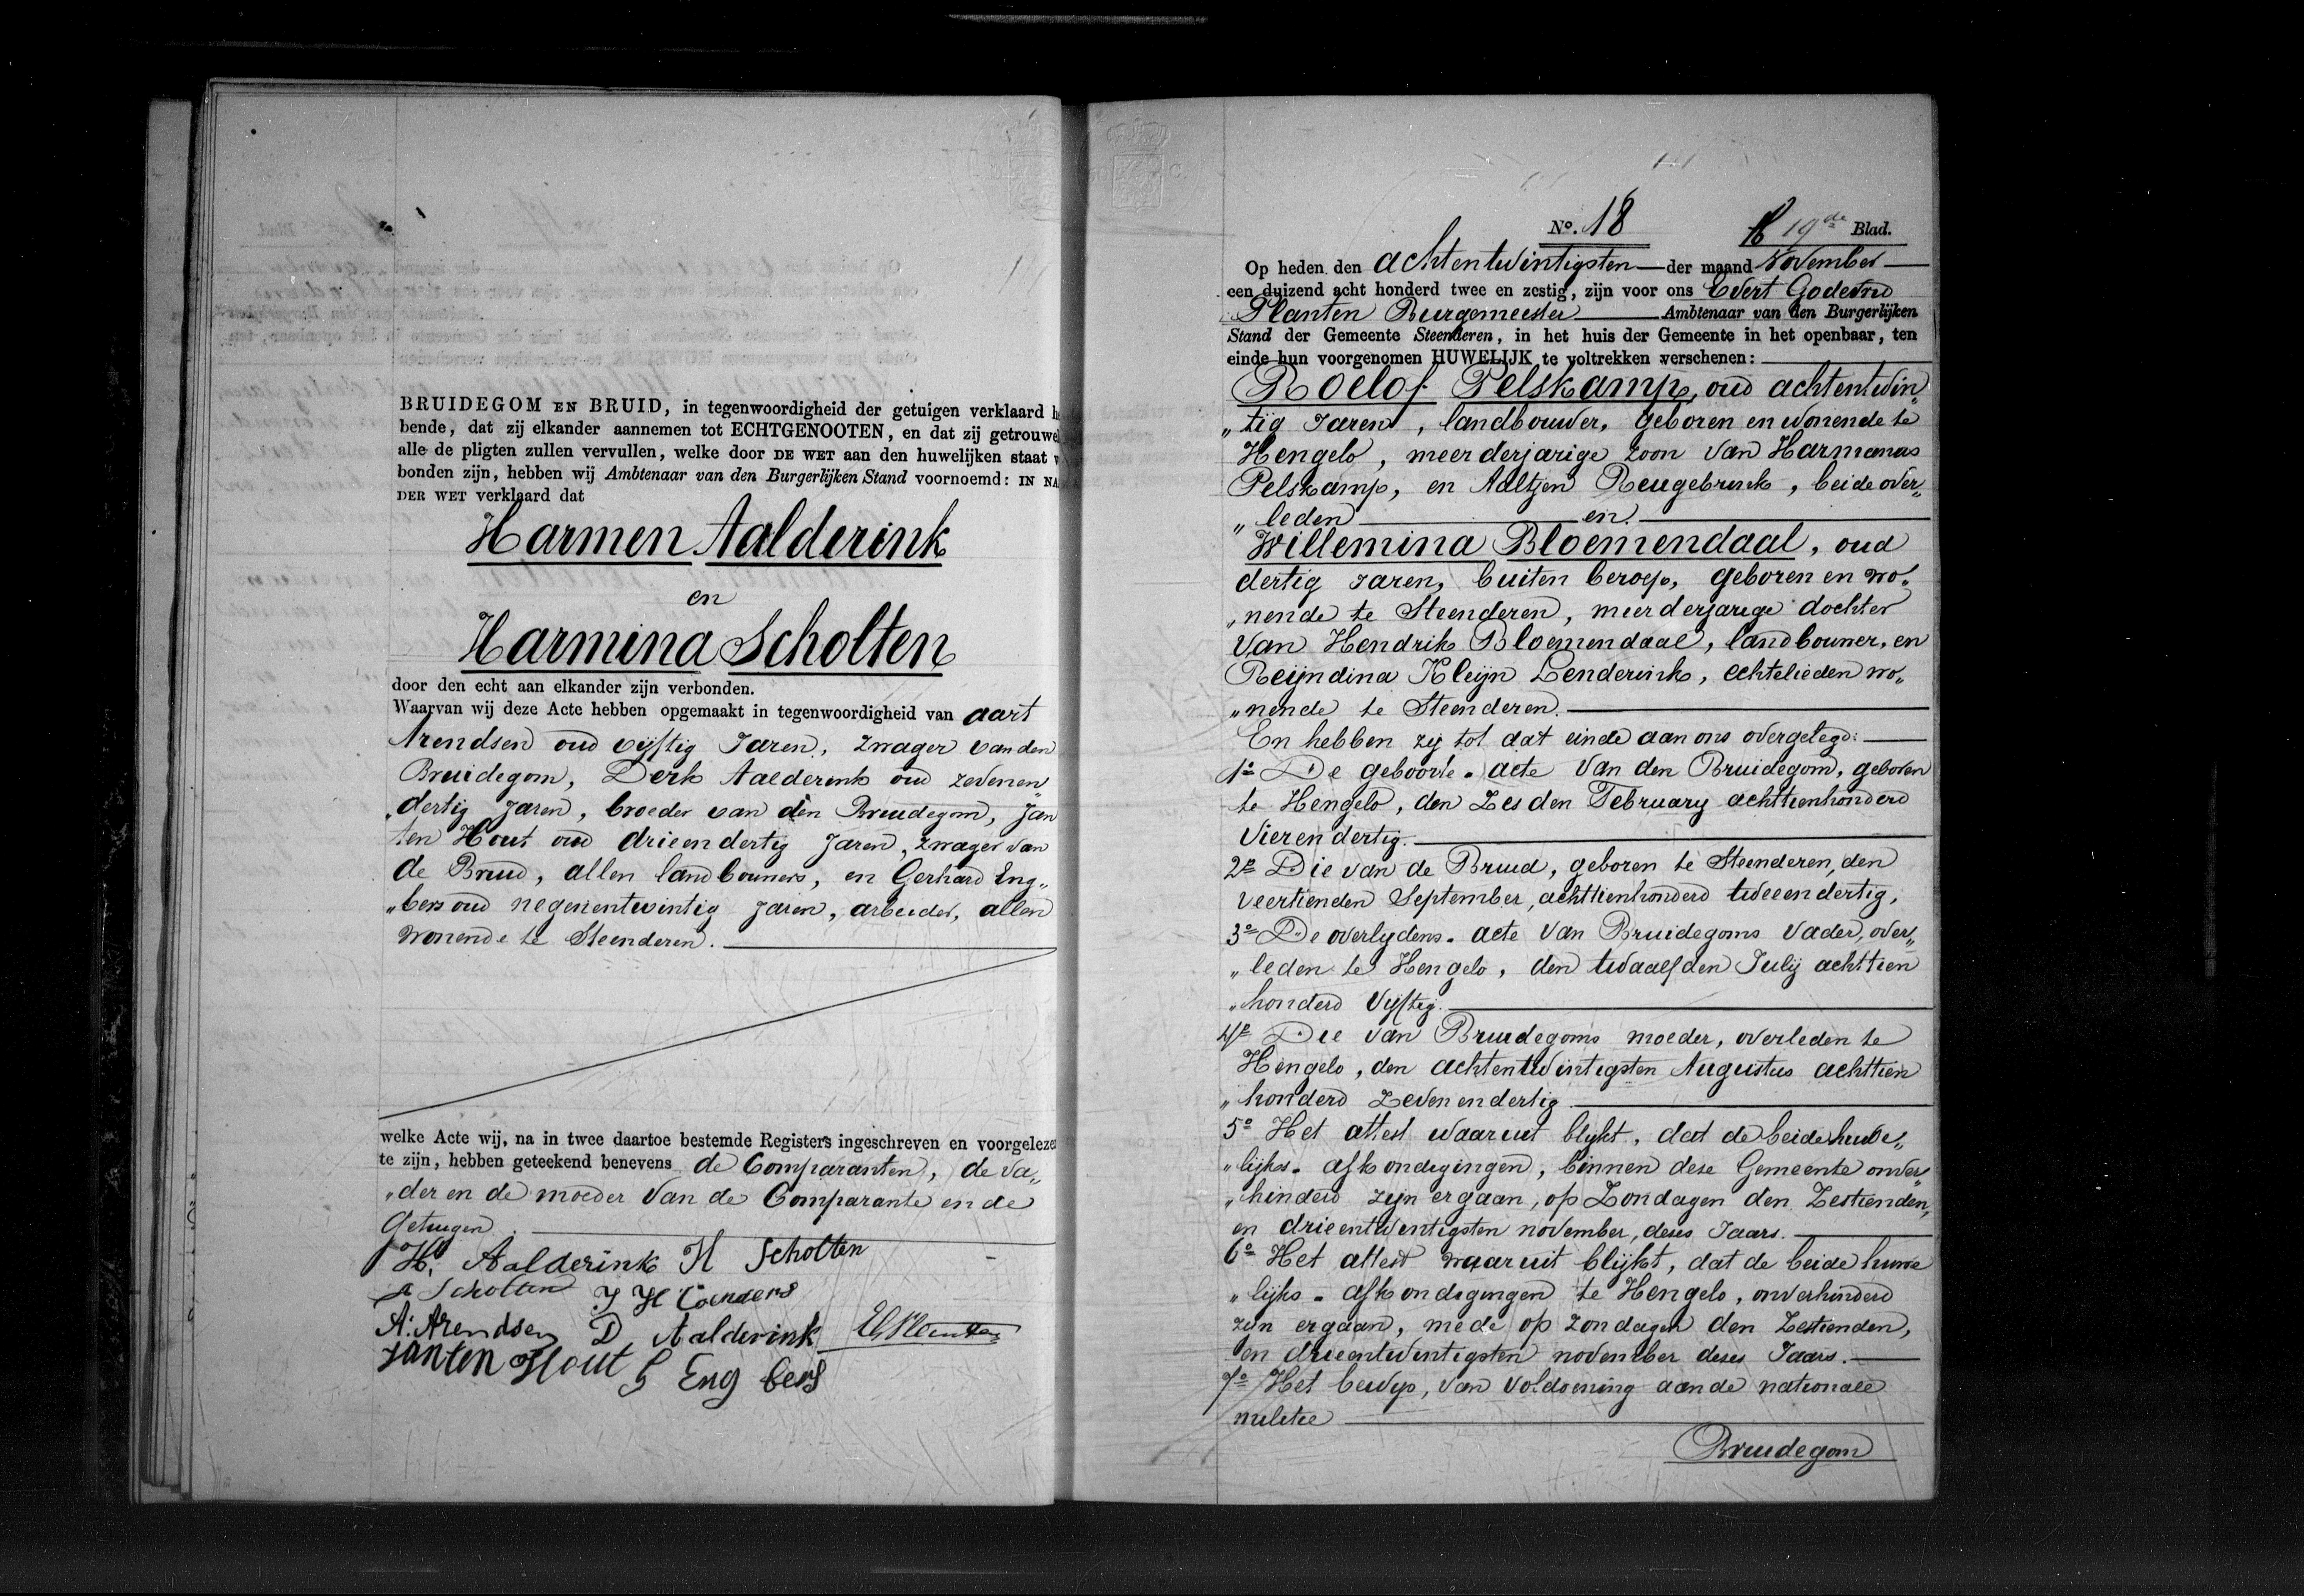 BRUIDEGOM EN BRUID, in tegenwoordigheid der getuigen verklaard h
bende, dat zij elkander aannemen tot ECHTGENOOTEN, en dat zij getrouwel
alle de pligten zullen vervullen, welke door DE WET aan den huwelijken staat v
bonden zijn, hebben wij Ambtenaar van den Burgerlijken Stand voornoemd: IN NA
DER WET verklaard dat
Harmen Aalderink
en
Harmina Scholten
door den echt aan elkander zijn verbonden.
Waarvan wij deze Acte hebben opgemaakt in tegenwoordigheid van aart
Arendsen oud vijftig Jaren, zwager van den
Bruidegom, Derk Aalderink oud zevenen„
„dertig Jaren, broeder van den Bruidegom, Jan
ten Hout oud drieendertig Jaren, zwager van
de Bruid, allen landbouwers, en Gerhard Eng„
„bers oud negenentwintig Jaren, arbeider, allen
wonende te Steenderen.
welke Acte wij, na in twee daartoe bestemde Registers ingeschreven en voorgeleze
te zijn, hebben geteekend benevens de Comparanten, de va„
„der en de moeder van de Comparante en de
Getuigen.
H. Aalderink H Scholten
Scholten J H Coenders
A. Arendsen D Aalderink
Janten Hout G Eng bers
No. 18 19de Blad.
Op heden den achtentwintigsten der maand November
een duizend acht honderd twee en zestig, zijn voor ons Evert Godefried
Planten Burgemeester Ambtenaar van den Burgerlijken
Stand der Gemeente Steenderen, in het huis der Gemeente in het openbaar, ten
einde hun voorgenomen HUWELIJK te voltrekken verschenen:
Roelof Pelskamp, oud achtentwin„
„tig Jaren, landbouwer, geboren en wonende te
Hengelo, meerderjarige zoon van Harmanus
Pelskamp, en Aaltjen Reugebrink, beide over„
„leden en
Willemina Bloemendaal, oud
dertig Jaren, buiten beroep, geboren en wo„
„nende te Steenderen, meerderjarige dochter
van Hendrik Bloemendaal, landbouwer, en
Reijndina Kleijn Lenderink, echtelieden wo„
„nende te Steenderen.
En hebben zij tot dat einde aan ons overgelegd:
1o De geboorte-acte van den Bruidegom, geboren
te Hengelo, den Zesden February achttienhonderd
Vierendertig.
2o Die van de Bruid, geboren te Steenderen, den
veertienden September, achttienhonderd tweeendertig,
3o De overlydens-acte van Bruidegoms vader, over„
„leden te Hengelo, den twaalfden July achttien
„honderd Vijftig.
4o Die van Bruidegoms moeder, overleden te
Hengelo, den achtentwintigsten Augustus achttien
„honderd Zevenendertig
5o Het attest waaruit blykt, dat de beide huwe„
„lijks-afkondigingen, binnen deze Gemeente onver„
„hinderd zyn ergaan, op Zondagen den Zestienden,
en drieentwentigsten november, deses Jaars.
6o Het attest waaruit blijkt, dat de beide huwe
„lijks-afkondigingen te Hengelo, onverhinderd
zyn ergaan, mede op zondagen den Zestienden,
en drieentwentigsten november deses Jaars.
7o Het bewys, van voldoening aan de nationale
militie
Bruidegom